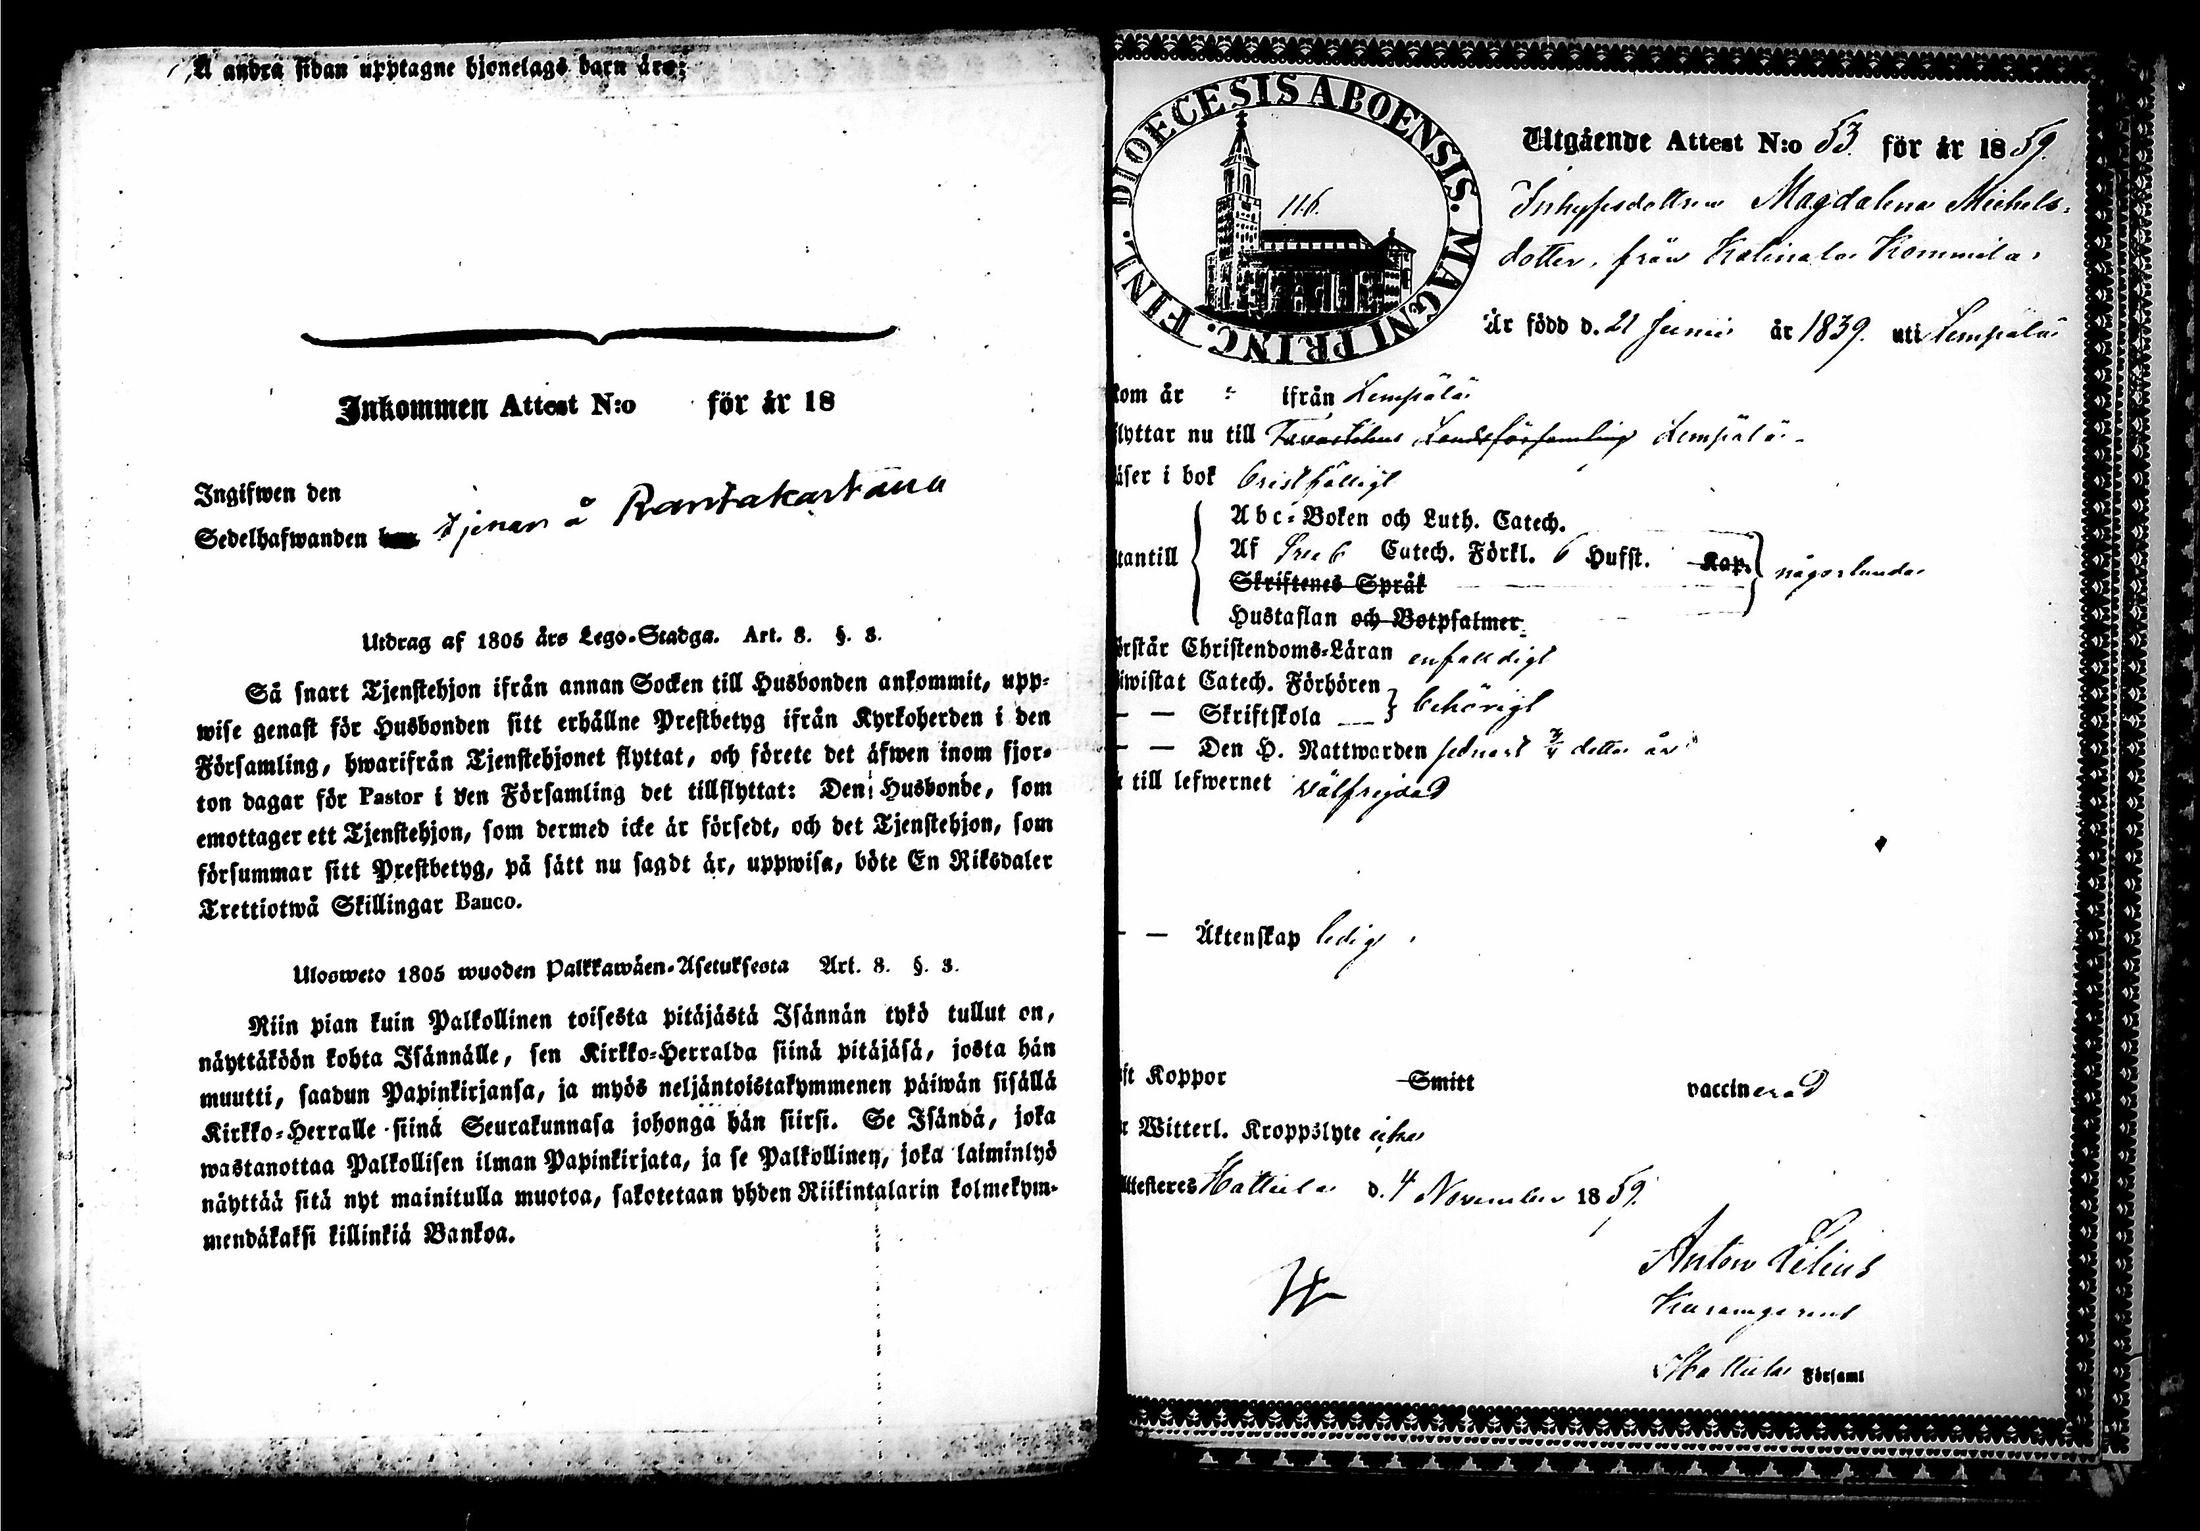 Å andra sidan upptagne hjonelags barn äro:
Inkommen Attest N:o för år 18
Ingifwen den
Sedelhafwanden tjenar å Rantakartano
Utdrag af 1805 års Lego-Stadga. Art. 8. §. 3.
Så snart Tjenstehjon ifrån annan Socken till Husbonden ankommit, upp-
wise genast för Husbonden sitt erhållne Prestbetyg ifrån Kyrkoherden i den
Församling, hwarifrån Tjenstehjonet flyttat, och förete det äfwen inom fjor-
ton dagar för Pastor i den Församling det tillflyttat: Den Husbonde, som
emottager ett Tjenstehjon, som dermed icke är försedt, och det Tjenstehjon, som
försummar sitt Prestbetyg, på sätt nu sagdt är, uppwisa, böte En Riksdaler
Trettiotwå Skillingar Banco.
Ulosweto 1805 wuoden Palkkawäen-Asetuksesta Art. 8. §. 3.
Niin pian kuin Palkollinen toisesta pitäjästä Isännän tykö tullut on,
näyttäköön kohta Isännälle, sen Kirkko-Herralda siinä pitäjäsä, josta hän
muutti, saadun Papinkirjansa, ja myös neljäntoistakymmenen päiwän sisällä
Kirkko-Herralle siinä Seurakunnasa johonga hän siirsi. Se Isändä, joka
wastanottaa Palkollisen ilman Papinkirjata, ja se Palkollinen, joka laiminlyö
näyttää sitä nyt mainitulla muotoa, sakotetaan yhden Riikintalarin kolmekym-
mendäkaksi killinkiä Bankoa.
DIOECESIS ABOENSIS. MAGNI PRINC. FINL.
116.
Utgående Attest N:o 53. för år 1859.
Inhysesdottren Magdalena Michels-
dotter, från Katinala Kommila,
Är född d. 21 Junii år 1839. uti Lempälä
kom år ifrån Lempälä
flyttar nu till Tavastehus Landsförsamling Lempälä
läser i bok bristfälligt
Abc-Boken och Luth. Catech.
Af Catech. Förkl. 6 Hufst. Kap.
utantill
någorlunda
Skriftenes Språk
Hustaflan och Botpsalmer
örstår Christendoms-Läran enfalldigt
iwistat Catech. Förhören
behörigt
— — Skriftskola
— — Den H. Nattwarden senast 3/4 detta år
till lefwernet välfrejdad
— — Äktenskap ledig
ft Koppor Smitt vaccinerad
r Witterl. Kroppslyte icke
Attesteres Hattula d. 4 November 1859.
Anton Lilius
Hattula Församl